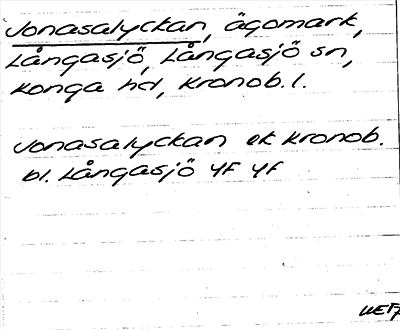 Jonasalyckan, ägomark,
Långasjö, Långasjö sn,
Konga hd, Kronob. l.
Jonasalyckan ek Kronob.
bl. Långasjö 4F 4f